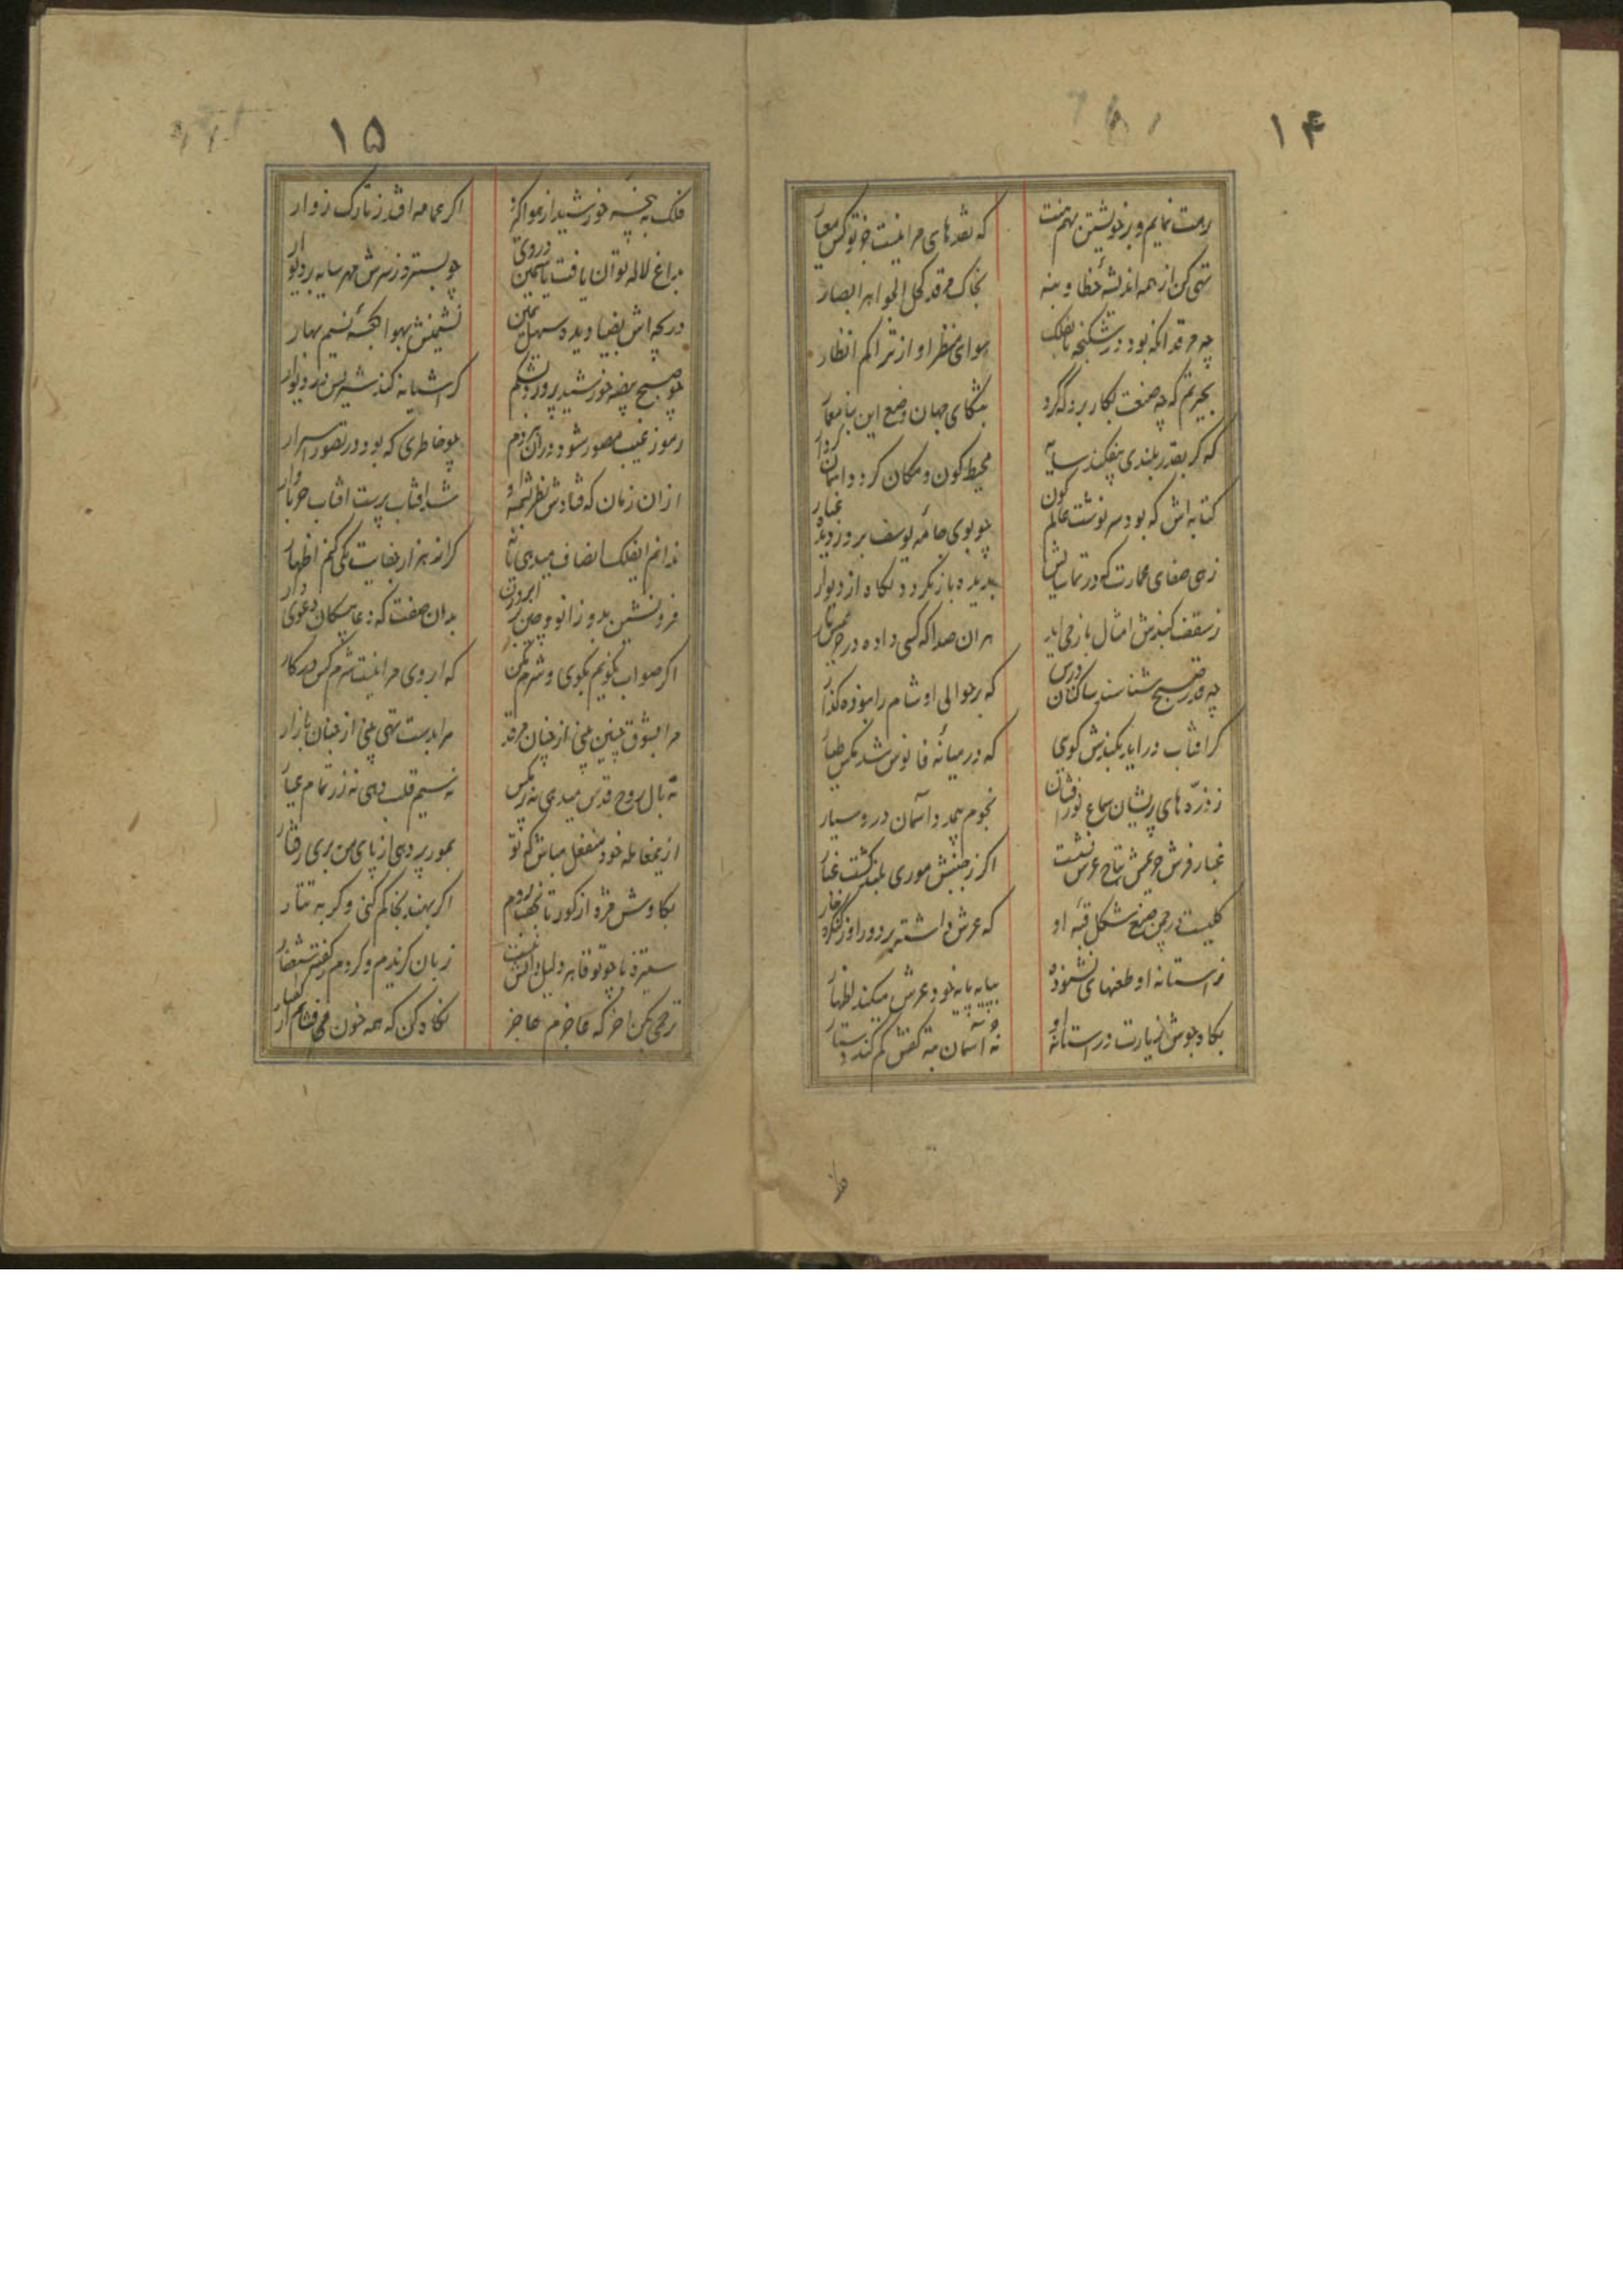 ۱۴
رهت نمایم و بر خویشتن نهم منت
که نقدهای مرا نیست جز تو کس معیار
تهی کن از همه اندیشهٔ خطا و بنه
بخاک مرقد کحل الجواهر ابصار
چه مرقد آنکه بود در شکنجه تا فلک
هوای منظر او از تراکم انظار
بحیرتم که چه صنعت بکار برد که کرد
بتنگنای جهان وضع این بنا معمار
که گر بقدر بلندی بیفکند سایه
محیط کون و مکان گردد آسمان کردار
کتابه اش که بود سرنوشت عالم کون
چو بوی جامه یوسف برد ز دیده غبار
زهی صفای عمارت که در تماشایش
بدیده باز نگردد نگاه از دیوار
ز سقف گنبدش امثال باز می آید
هر آن صدا که کسی داده در
چه قدر صبح شناسند ساکنان درش
که بر حوالی او شام را نبوده گذار
گر آفتاب درآید بگنبدش گوئی
که در میانه فانوس شد مگس طیار
ز ذره های پریشان سماع نورافشان
نجوم بیحد و آسمان در او سیار
غبار فرش حریمش بتاج عرش نشست
اگر ز جنبش موری بلند گشت غبار
گلیست در چمن صنع شکل قبه او
که عرش داشته بر دور او ز کنگره خار
ز آستانه او طعنهای نشنوده
بپایه پایه خود عرش میکند اظهار
بگاه جوش زیارت در آستانه او
نه آسمان ته کفش گم کند دستار
۱۵
فلک به پنجه خورشید از هوا گیرد
اگر عمامه افتد ز تارک زوار
بداغ لاله توان یافت یاسمین در وی
چو بسترد ز سرش مهر سایه دیوار
دریچه اش بضیا دیده سهیل یمن
نشیمنش بهوا غنچه نسیم بهار
چو صبح بیضه خورشید پرورد بشکم
گر آشیانه کند شپرش در دیوار
رموز غیب مصور شود در آن مردم
چو خاطری که بود در تصور اسرار
از آن زمان که فتادش نظر بشمسه او
شد آفتاب پرست آفتاب حربا وار
ندانم ای فلک انصاف میدهی یا نه
گر از هزار جفایت یکی کنم اظهار
فرو نشین بدو زانو و چین بر ابرو زن
بدان صفت که نمایند دعوی دار
اگر صواب نگویم بگوی و شرم مکن
که از روی مرا نیست شرم کس در کار
مرا بشوق چنین منی از چنان مرقد
مرا بدست تهی منی از چنان بازار
نه بال روح قدس میدهی نه پر مگس
نه سیم قلب دهی نه زر تمام عیار
ازین معامله خود منفعل مباش که تو
بمور پر دهی از پای من بری رفتار
بکاوش مژه از گور تا نجف بروم
اگر بهند بخاکم کنی و گر به تتار
ستیزه با چو تو قاهر دلیل دانش نیست
زبان گزیدم و کردم ز گفته استغفار
ترحمی بکن آخر که عاجزم عاجز
نگاه کن که همه خون می فشانم از گفتار